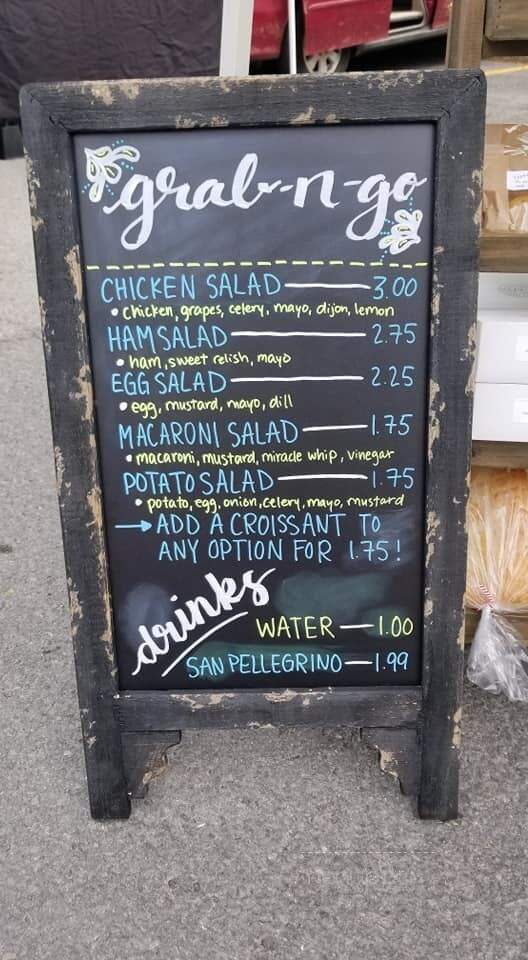 grab-n-go
CHICKEN SALAD — 3.00
• chicken, grapes, celery, mayo, dijon, lemon
HAM SALAD — 2.75
• ham, sweet relish, mayo
EGG SALAD — 2.25
• egg, mustard, mayo, dill
MACARONI SALAD — 1.75
• macaroni, mustard, miracle whip, vinegar
POTATO SALAD — 1.75
• potato, egg, onion, celery, mayo, mustard
→ ADD A CROISSANT TO
ANY OPTION FOR 1.75!
drinks
WATER — 1.00
SAN PELLEGRINO — 1.99